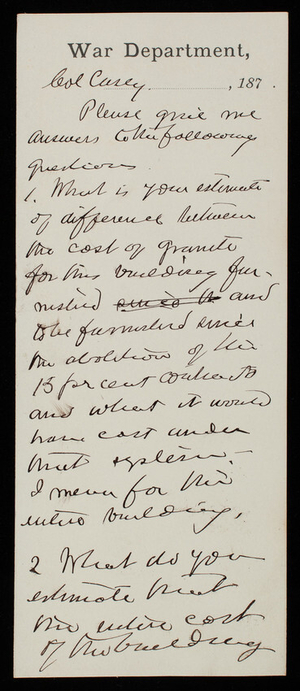 War Department,
Col Casey , 187 .
Please give me
answers to the following
questions
1. What is your estimate
of difference between
the cost of granite
for this building fur-
nished since th and
to be furnished since
the abolition of the
15 per cent contracts
and what it would
have cost under
that system.-
I mean for the
entire building,
2 What do you
estimate that
the entire cost
of the building